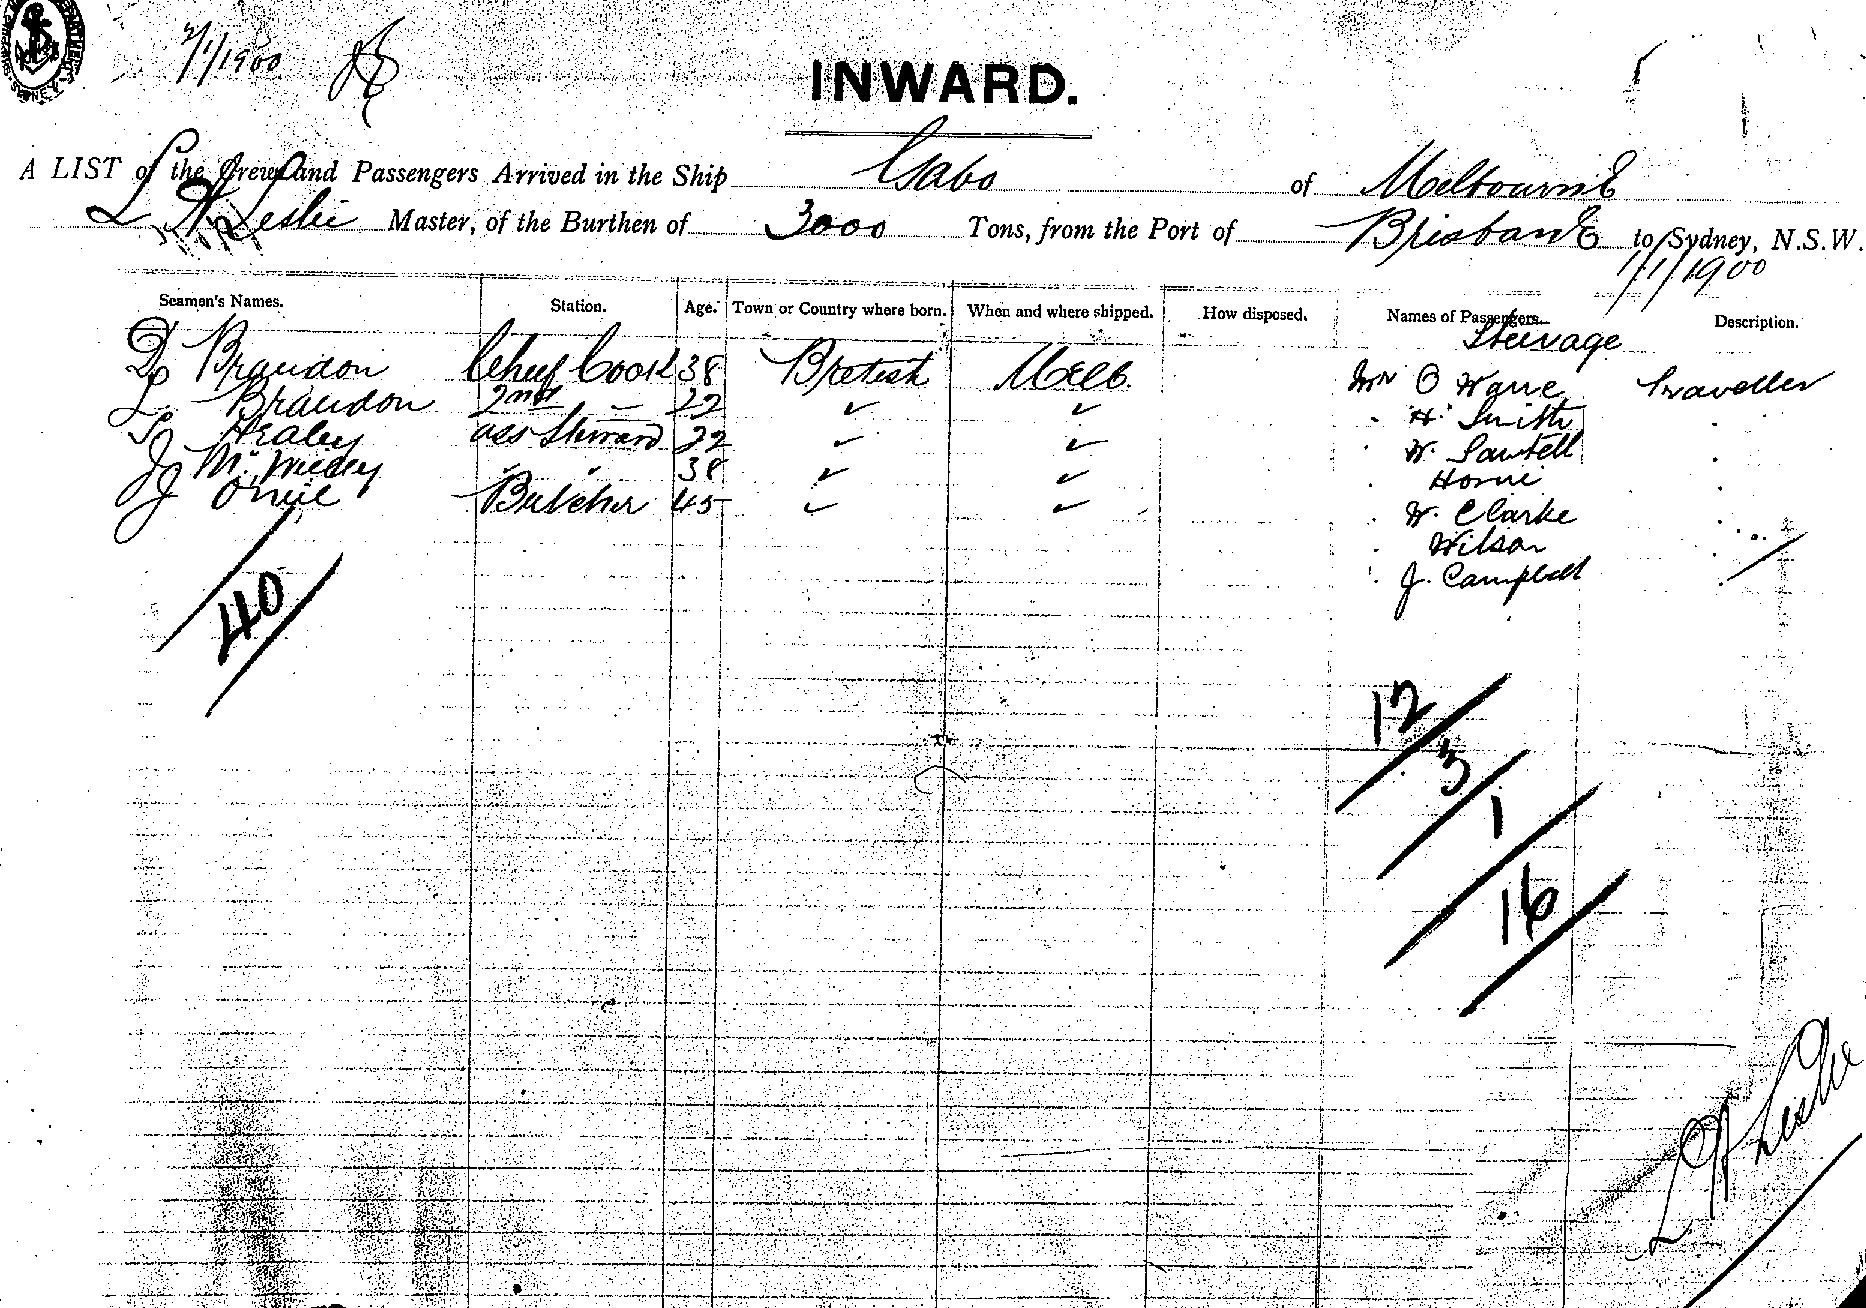 2/1/1900
INWARD.
A LIST of the Crew and Passengers Arrived in the Ship Gabo of Melbourne
L W Leslie Master, of the Burthen of 3000 Tons, from the Port of Brisbane to Sydney, N.S.W.
1/1/1900
Seamen's Names. Station. Age. Town or Country where born. When and where shipped. How disposed. Names of Passengers. Description.
Steerage
D Brandon Chief Cook 38 British Melb. O Wane Traveller
L. Brandon 2nd — 22 ✓ ✓ H. Smith
Healey ass Steward 22 ✓ ✓ W. Sawtell
J 38 ✓ ✓ Horne
J Oneil Butcher 45 ✓ ✓ W. Clarke
Wilson
J. Campbell
40
12
3
1
16
L W Leslie